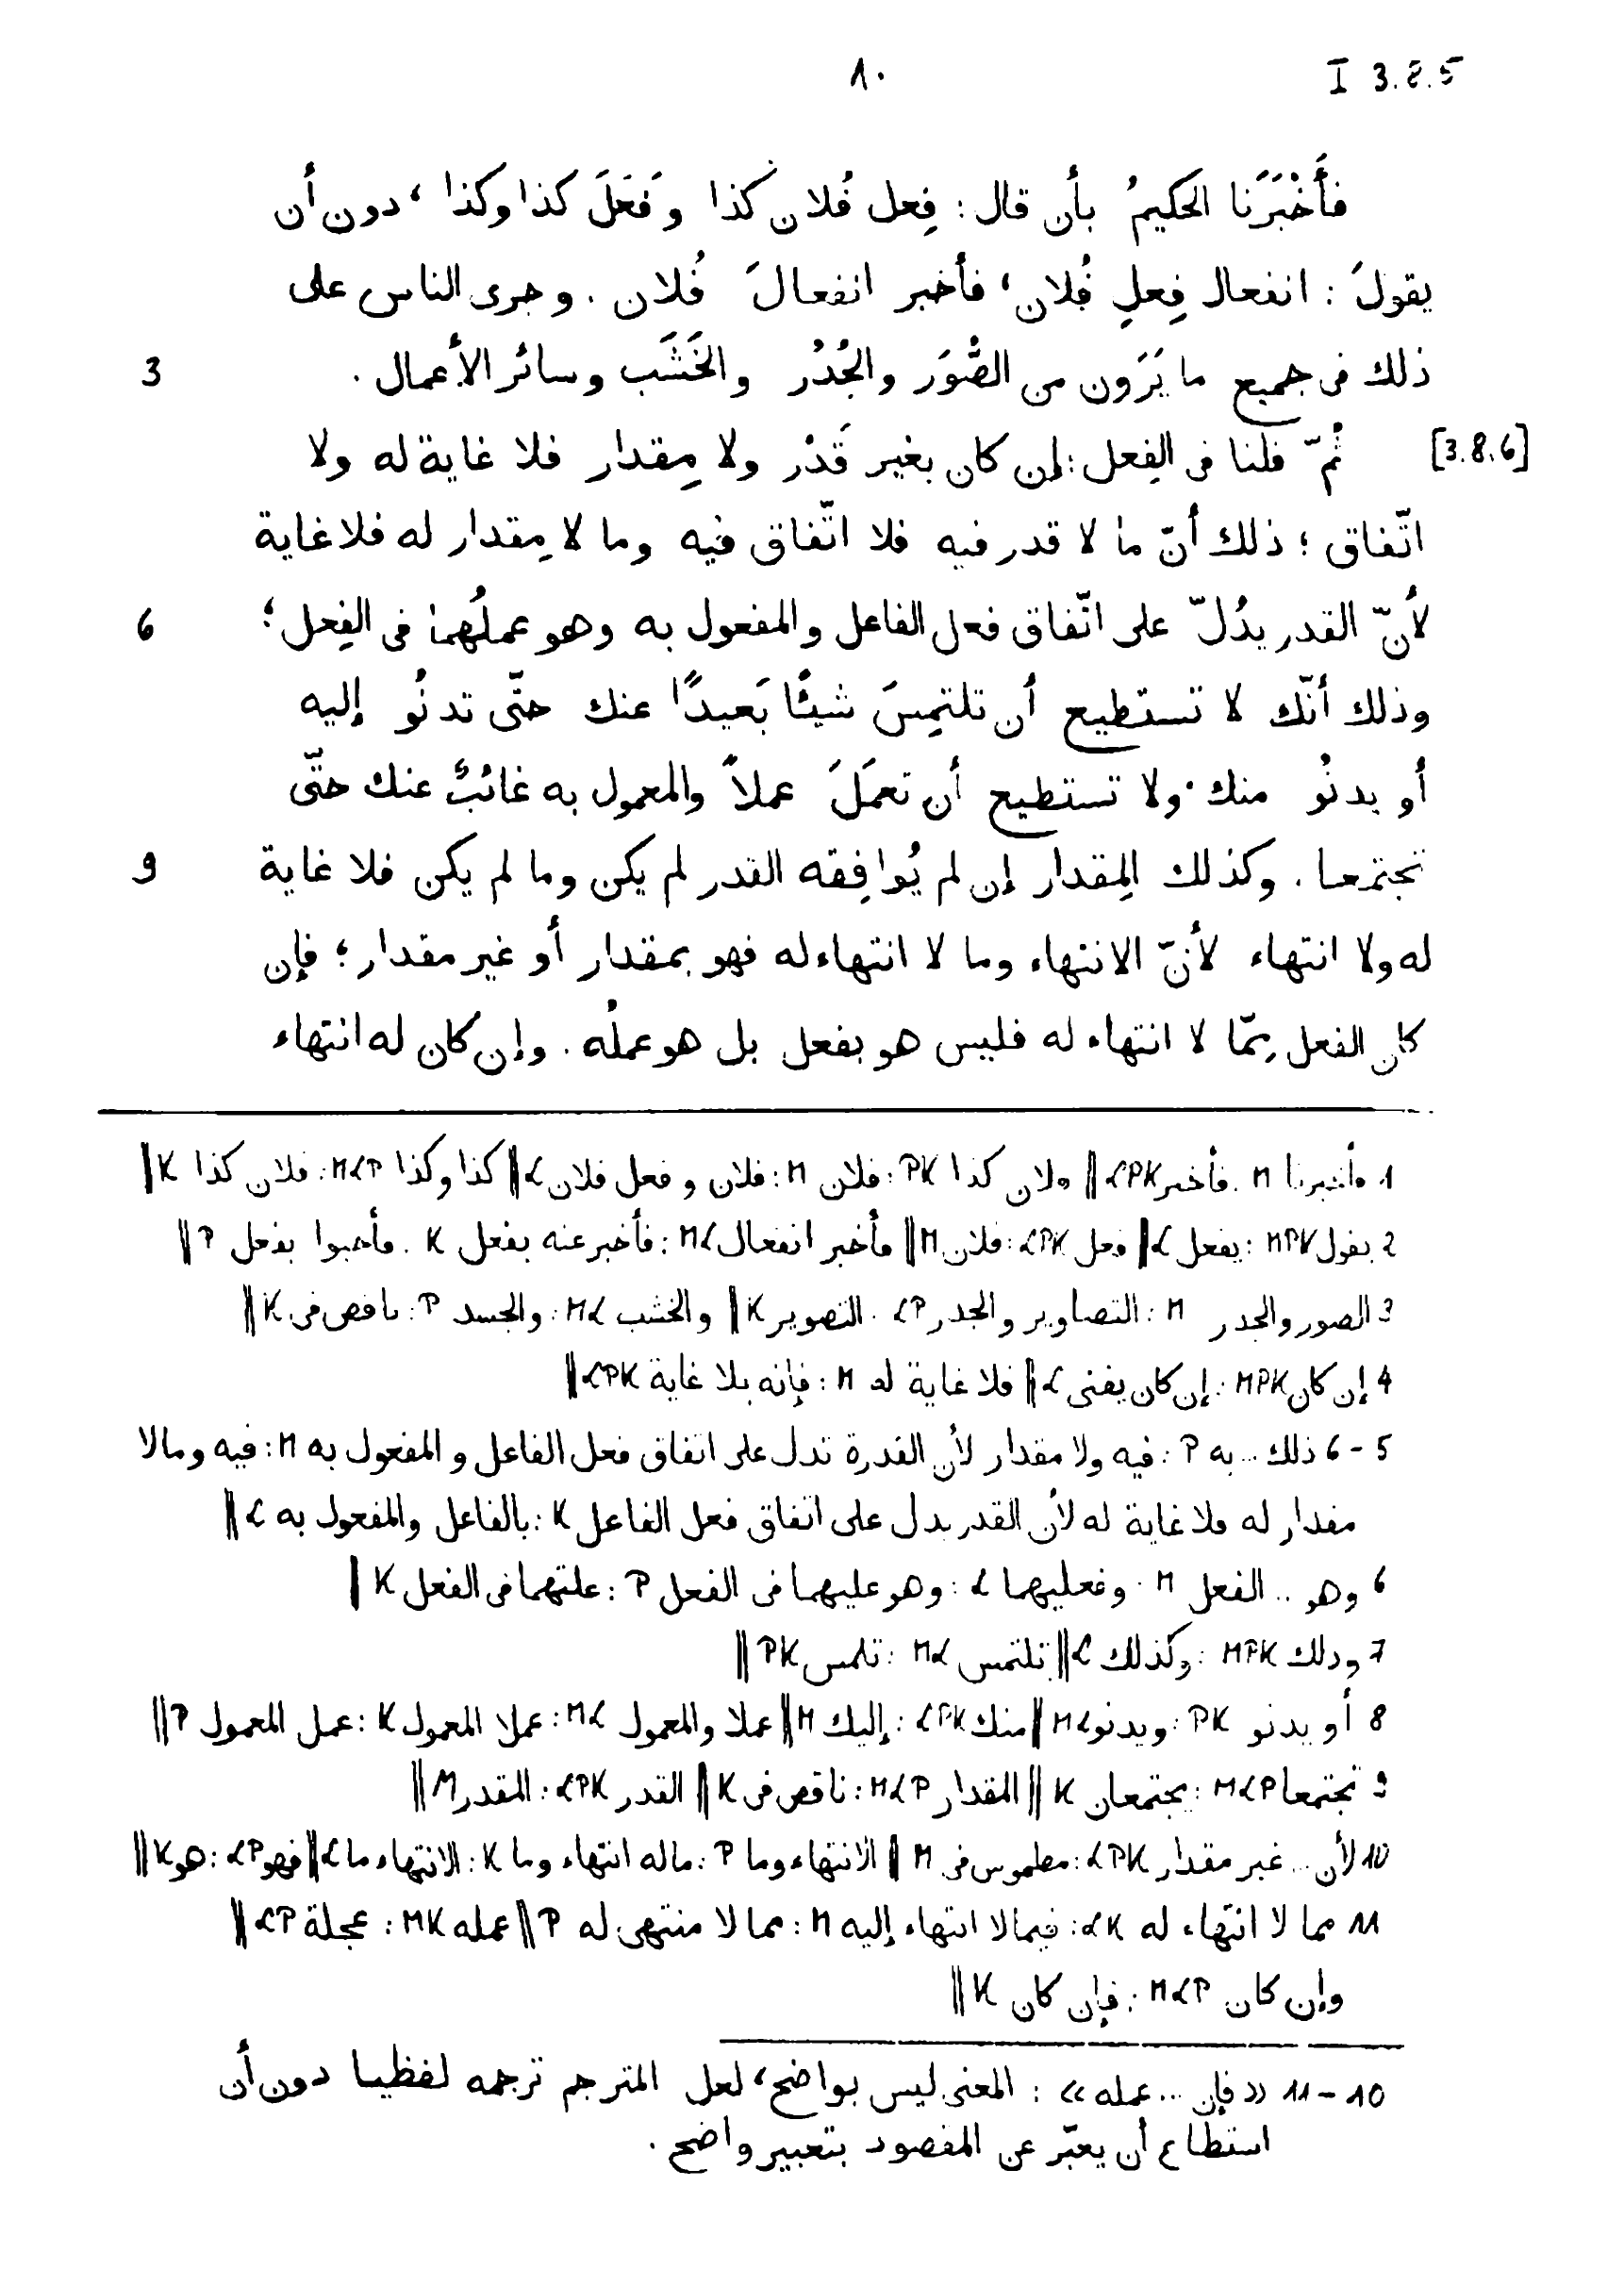 ١٠ I 3.8.5
فَأَخْبَرَنا الحكيمُ بأن قال: فِعل فُلان كذا وفَعَلَ كذا وكذا، دون أن
يقولَ: انفعال فِعلِ فُلان، فأخبر انفعالَ فُلان. وجرى الناس على
ذلك فى جميع ما يَرَون من الصُّوَر والجُدُر والخَشَب وسائر الأعمال. 3
[3.8.6] ثُمّ قلنا فى الفِعل: إن كان بغير قَدْر ولا مِقدار فلا غاية له ولا
اتّفاق؛ ذلك أنّ ما لا قدر فيه فلا اتّفاق فيه وما لا مِقدار له فلا غاية
لأنّ القدر يدُلّ على اتّفاق فعل الفاعل والمفعول به وهو عملُهما فى الفِعل؛ 6
وذلك أنّك لا تستطيع أن تلتمِسَ شيئًا بَعيدًا عنك حتّى تدنُو إليه
أو يدنُو منك. ولا تستطيع أن تعمَلَ عملاً والمعمول به غائبٌ عنك حتّى
تجتمعا. وكذلك المِقدار إن لم يُوافِقه القدر لم يكن وما لم يكن فلا غاية 9
له ولا انتهاء لأنّ الانتهاء وما لا انتهاء له فهو بمقدار أو غير مقدار؛ فإن
كان الفعل مِمّا لا انتهاء له فليس هو بفعل بل هو عملُه. وإن كان له انتهاء
1 فأخبرنا M: فأخبر LPK ‖ فلان كذا PK: فلان M: فلان وفعل فلان L ‖ كذا وكذا MLP: فلان كذا K ‖
2 يقول MPK: يفعل L ‖ فعل LPK: فلان M ‖ فأخبر انفعال ML: فأخبر عنه بفعل K: فأحبوا بفعل P ‖
3 الصور والجدر M: التصاوير والجدر LP: التصوير K ‖ والخشب ML: والجسد P: ناقص فى K ‖
4 إن كان MPK: إن كان يفنى L ‖ فلا غاية له M: فإنه بلا غاية LPK ‖
5-6 ذلك .. به P: فيه ولا مقدار لأن القدرة تدل على اتفاق فعل الفاعل والمفعول به M: فيه وما لا
مقدار له فلا غاية له لأن القدر يدل على اتفاق فعل الفاعل K: بالفاعل والمفعول به L ‖
6 وهو .. الفعل M: وفعليهما L: وهو عليهما فى الفعل P: علتهما فى الفعل K ‖
7 وذلك MPK: وكذلك L ‖ تلتمس ML: تلمس PK ‖
8 أو يدنو PK: ويدنو ML ‖ منك LPK: إليك M ‖ عملا والمعمول ML: عملا المعمول K: عمل المعمول P ‖
9 تجتمعا MLP: يجتمعان K ‖ المقدار MLP: ناقص فى K ‖ القدر LPK: المقدر M ‖
10 لأن .. غير مقدار LPK: مطموس فى M ‖ الانتهاء وما P: ما له انتهاء وما K: الانتهاء ما L ‖ فهو LP: هو K ‖
11 مما لا انتهاء له LK: فيما لا انتهاء إليه M: مما لا منتهى له P ‖ عمله MK: عجلة LP ‖
وإن كان MLP: فإن كان K ‖
10-11 «فإن ... عمله»: المعنى ليس بواضح، لعل المترجم ترجمه لفظيا دون أن
استطاع أن يعبّر عن المقصود بتعبير واضح.